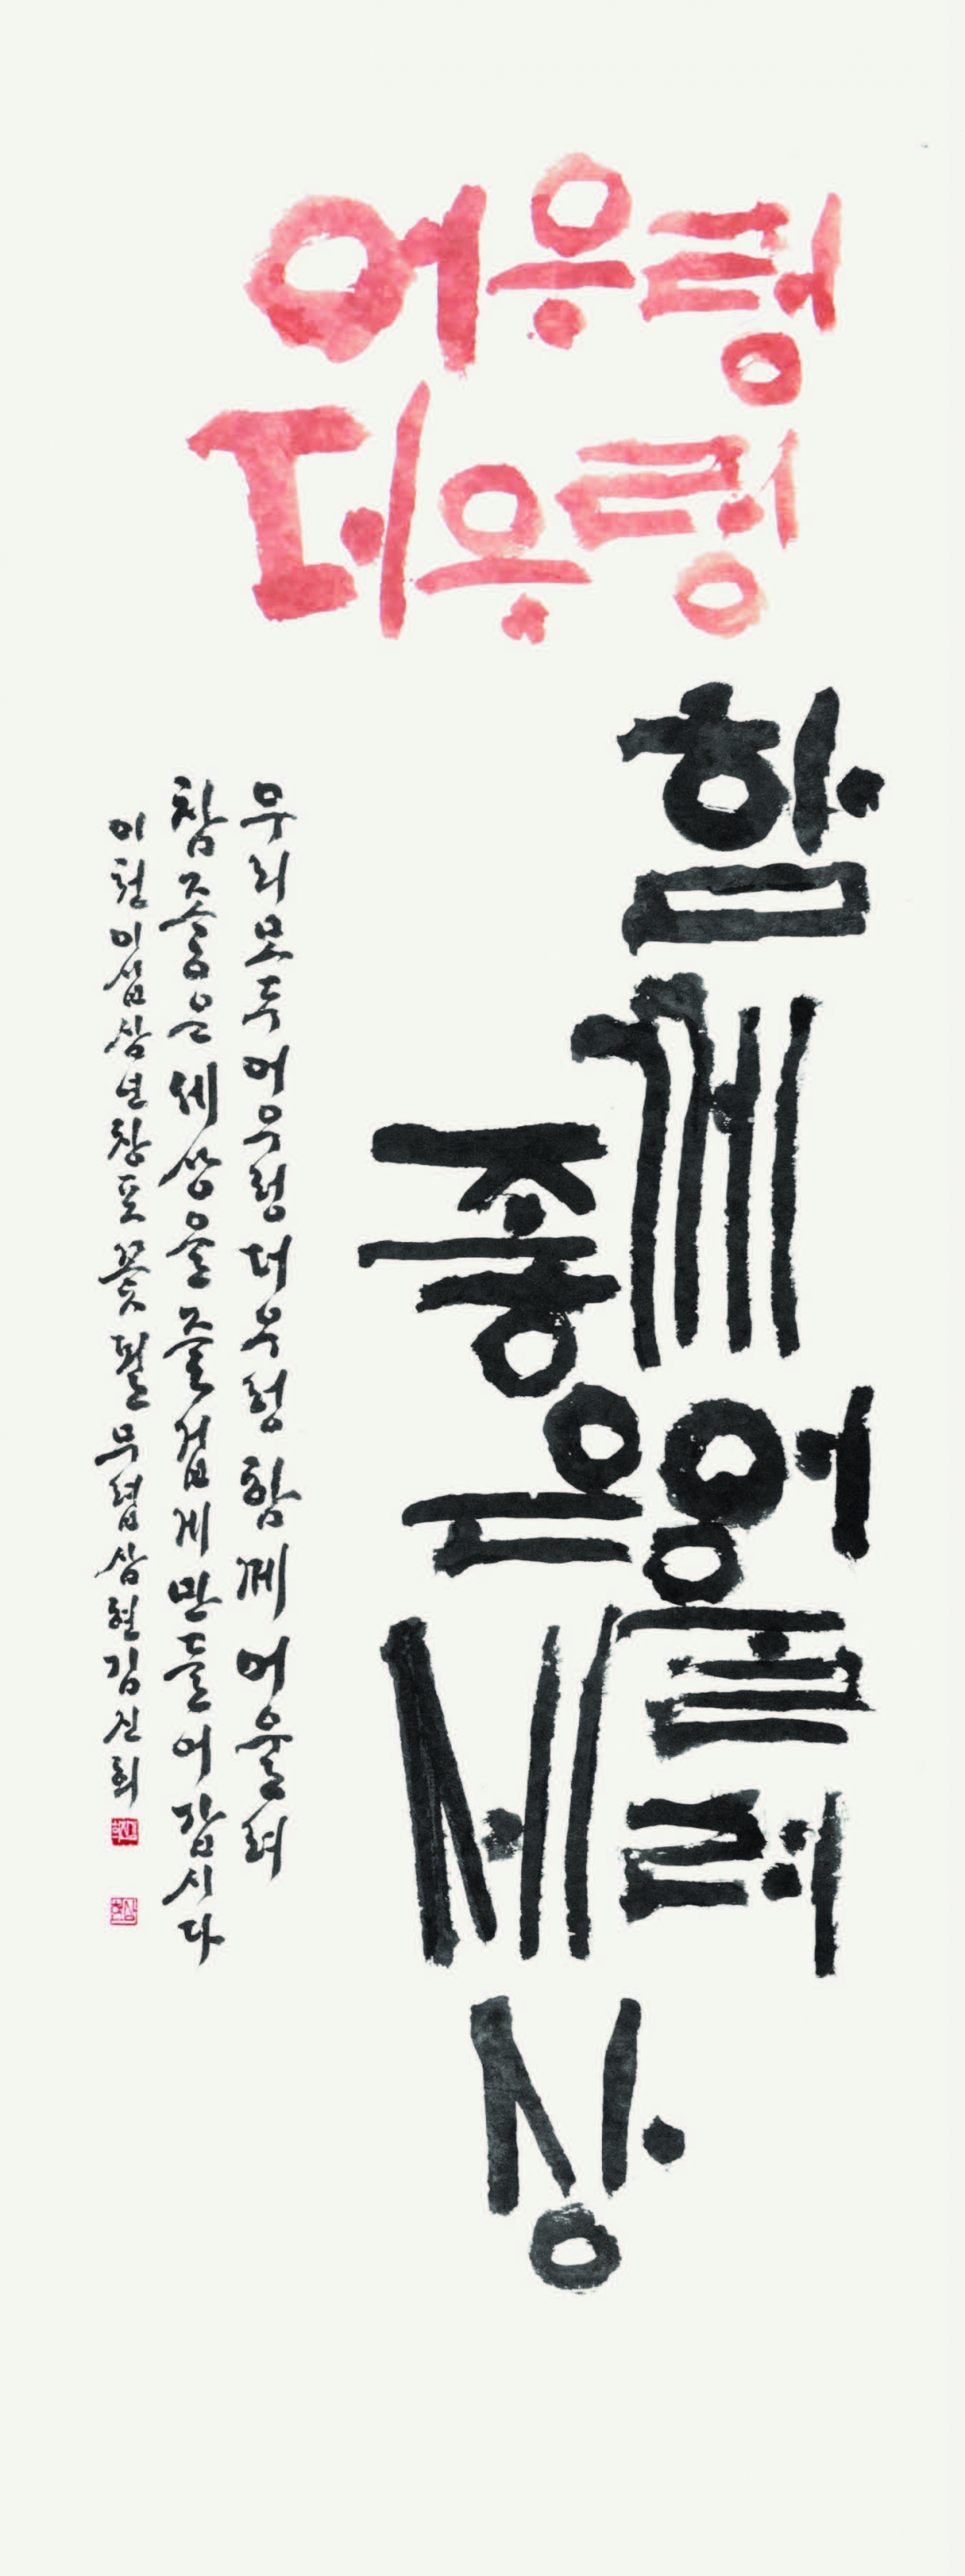 어우렁
더우렁
함께 어울려
좋은 세상
우리 모두 어우렁 더우렁 함께 어울려
참 좋은 세상을 즐겁게 만들어 갑시다
이천이십삼년 창포꽃 필 무렵 삼현 김진희